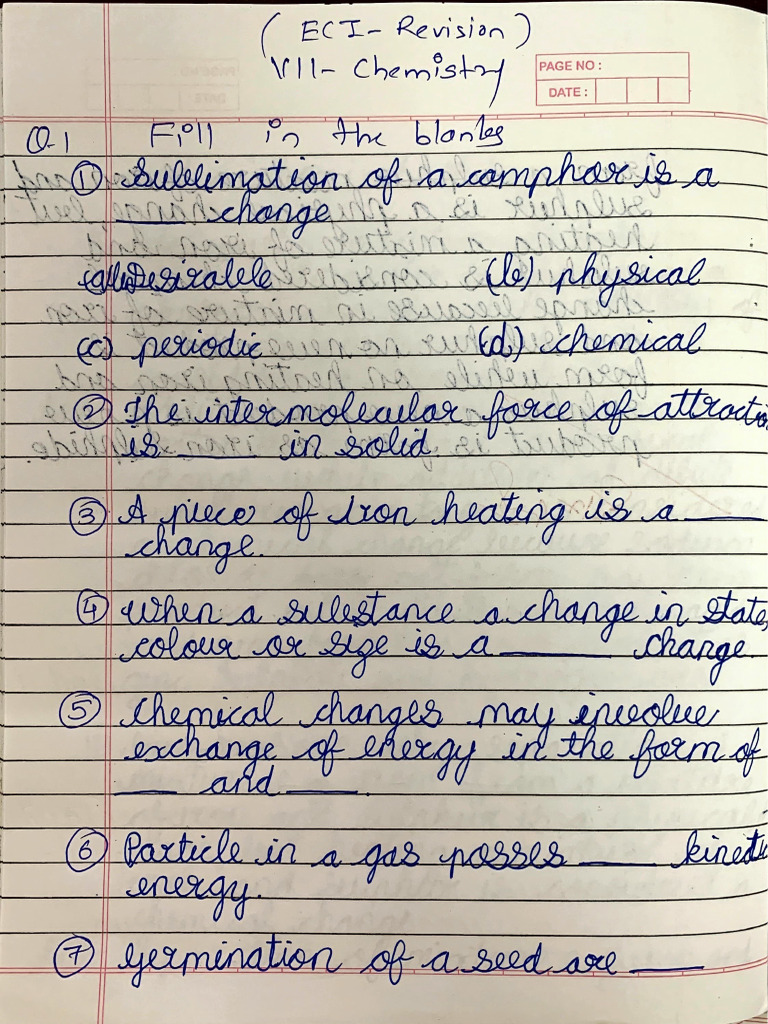 (ECI - Revision)
VII - Chemistry
PAGE NO :
DATE :
Q.1 Fill in the blanks
① Sublimation of a camphor is a
____ change
desirable (b) physical
(c) periodic (d) chemical
② The intermolecular force of attractio
is ____ in solid
③ A piece of Iron heating is a ____
change.
④ When a substance a change in state,
colour or size is a ____ change
⑤ Chemical changes may involve
exchange of energy in the form of
____ and ____.
⑥ Particle in a gas posses ____ kinetic
energy.
⑦ Germination of a seed are ____